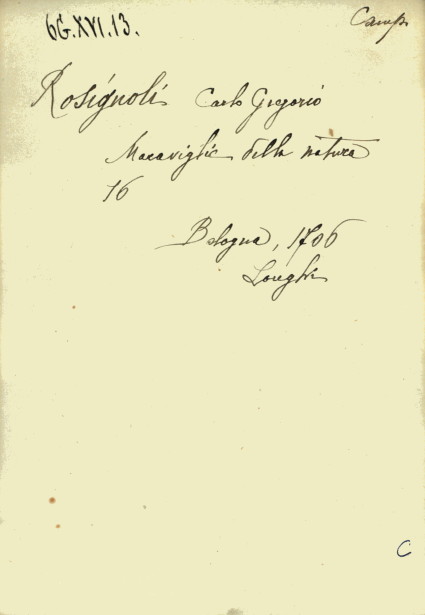 6G.XVI.13.
Camp.
Rosignoli Carlo Gregorio
Maraviglie della natura
16
Bologna, 1706
Longhi
C